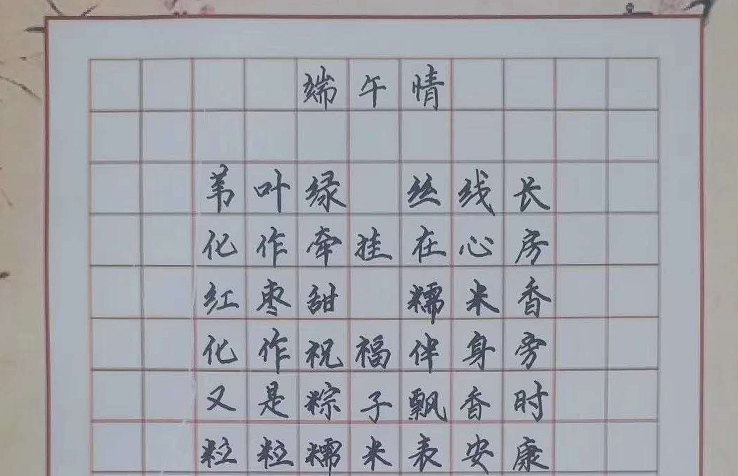 端午情
苇叶绿 丝线长
化作牵挂在心房
红枣甜 糯米香
化作祝福伴身旁
又是粽子飘香时
粒粒糯米表安康